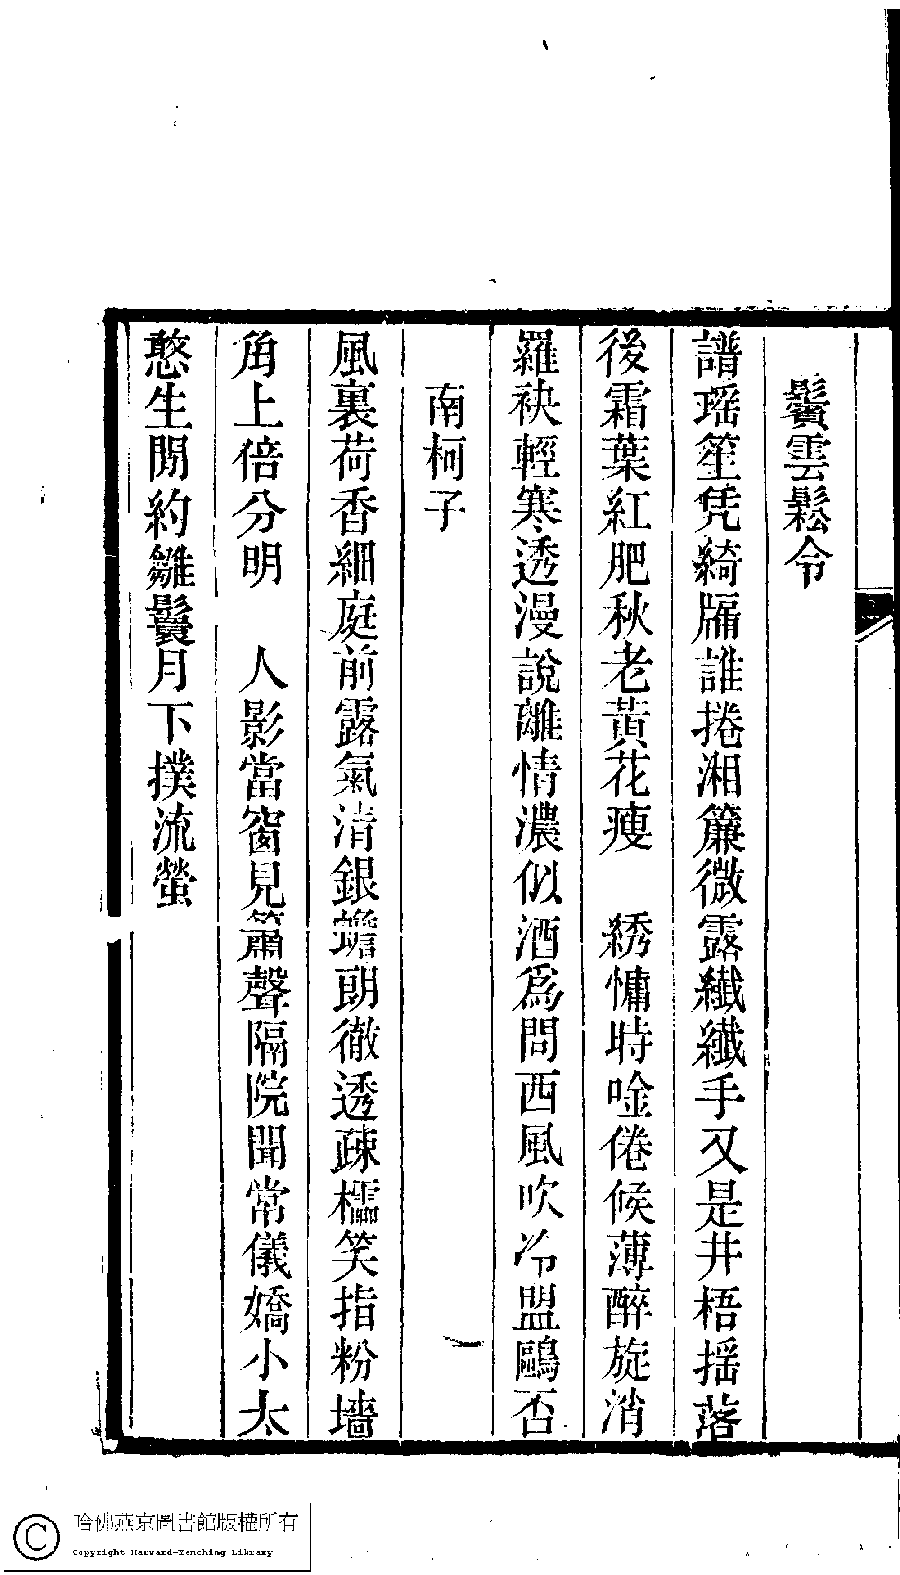 鬢雲鬆令
譜瑤笙凭綺牖誰捲湘簾微露纖纖手又是井梧揺落
後霜葉紅肥秋老黃花瘦　綉慵時唫倦候薄醉旋消
羅袂輕寒透漫說離情濃似酒爲問西風吹冷盟鷗否
南柯子
風裏荷香細庭前露氣清銀蟾朗徹透疎櫺笑指粉墻
角上倍分明　人影當窗見簫聲隔院聞常儀嬌小太
憨生閒約雛鬟月下撲流螢
哈佛燕京圖書館版權所有
Copyright Harvard-Yenching Library